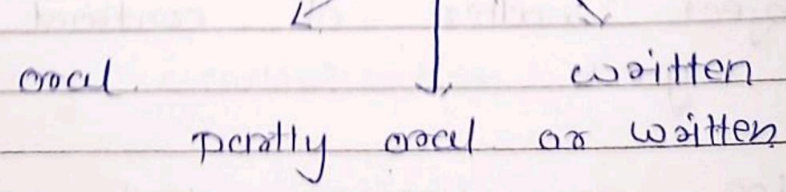 oral. written
partly oral or written